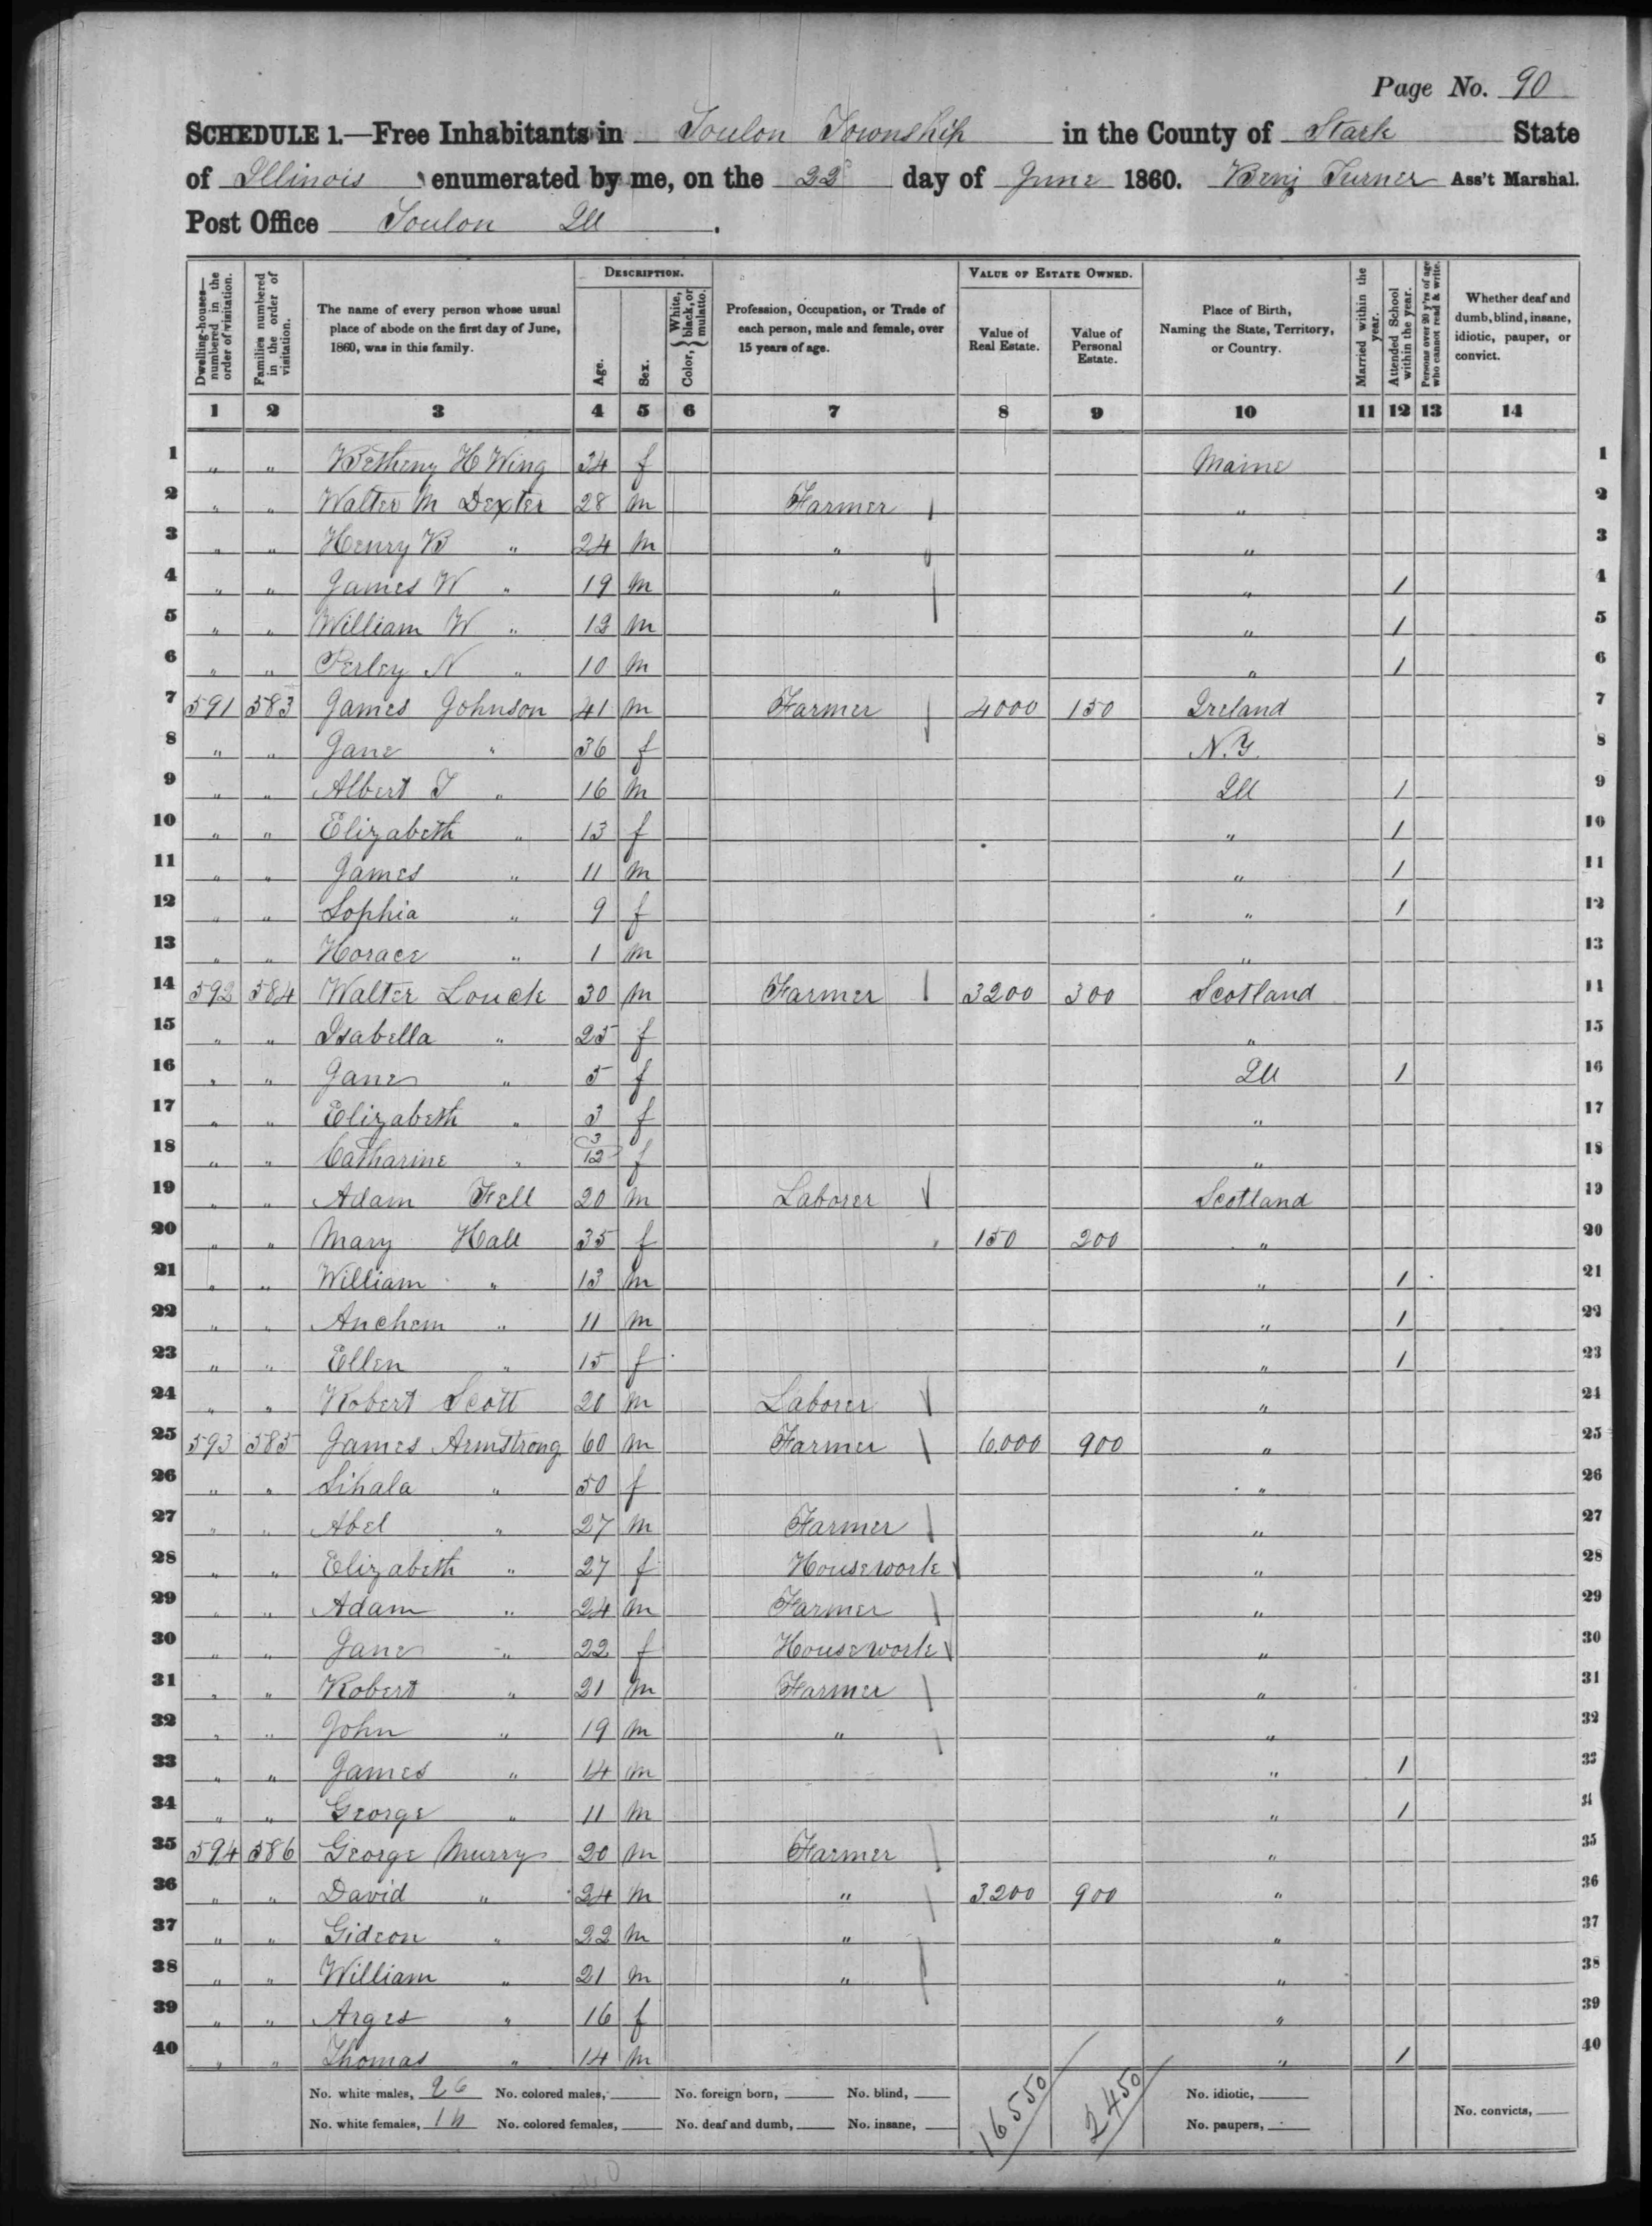 Page No. 90
SCHEDULE 1.—Free Inhabitants in Toulon Township in the County of Stark State
of Illinois enumerated by me, on the 22d day of June 1860. Benj Turner Ass't Marshal.
Post Office Toulon Ill.
Dwelling-houses—numbered in the order of visitation. Families numbered in the order of visitation. The name of every person whose usual place of abode on the first day of June, 1860, was in this family. DESCRIPTION. Age. Sex. Color, { White, black, or mulatto. Profession, Occupation, or Trade of each person, male and female, over 15 years of age. VALUE OF ESTATE OWNED. Value of Real Estate. Value of Personal Estate. Place of Birth, Naming the State, Territory, or Country. Married within the year. Attended School within the year. Persons over 20 y'rs of age who cannot read & write. Whether deaf and dumb, blind, insane, idiotic, pauper, or convict.
1 2 3 4 5 6 7 8 9 10 11 12 13 14
1 " " Betheny H Wing 34 f Maine 1
2 " " Walter M Dexter 28 m Farmer " 2
3 " " Henry B " 24 m " " 3
4 " " James W " 19 m " " 1 4
5 " " William W " 12 m " 1 5
6 " " Perley N " 10 m " 1 6
7 591 583 James Johnson 41 m Farmer 4000 150 Ireland 7
8 " " Jane " 36 f N.Y. 8
9 " " Albert T " 16 m Ill 1 9
10 " " Elizabeth " 13 f " 1 10
11 " " James " 11 m " 1 11
12 " " Sophia " 9 f " 1 12
13 " " Horace " 1 m " 13
14 592 584 Walter Louck 30 m Farmer 3200 300 Scotland 14
15 " " Isabella " 25 f " 15
16 " " Jane " 5 f Ill 1 16
17 " " Elizabeth " 3 f " 17
18 " " Catharine " 3/12 f " 18
19 " " Adam Fell 20 m Laborer Scotland 19
20 " " Mary Hall 35 f 150 200 " 20
21 " " William " 13 m " 1 21
22 " " Anchem " 11 m " 1 22
23 " " Ellen " 15 f " 1 23
24 " " Robert Scott 20 m Laborer " 24
25 593 585 James Armstrong 60 m Farmer 6,000 900 " 25
26 " " Sihala " 50 f " 26
27 " " Abel " 27 m Farmer " 27
28 " " Elizabeth " 27 f Housework " 28
29 " " Adam " 24 m Farmer " 29
30 " " Jane " 22 f Housework " 30
31 " " Robert " 21 m Farmer " 31
32 " " John " 19 m " " 32
33 " " James " 14 m " 1 33
34 " " George " 11 m " 1 34
35 594 586 George Murry 20 m Farmer " 35
36 " " David " 24 m " 3,200 900 " 36
37 " " Gideon " 22 m " " 37
38 " " William " 21 m " " 38
39 " " Arges " 16 f " 39
40 " " Thomas " 14 m " 1 40
No. white males, 26 No. colored males, No. foreign born, No. blind, 16550 2450 No. idiotic,
No. white females, 14 No. colored females, No. deaf and dumb, No. insane, No. paupers, No. convicts,